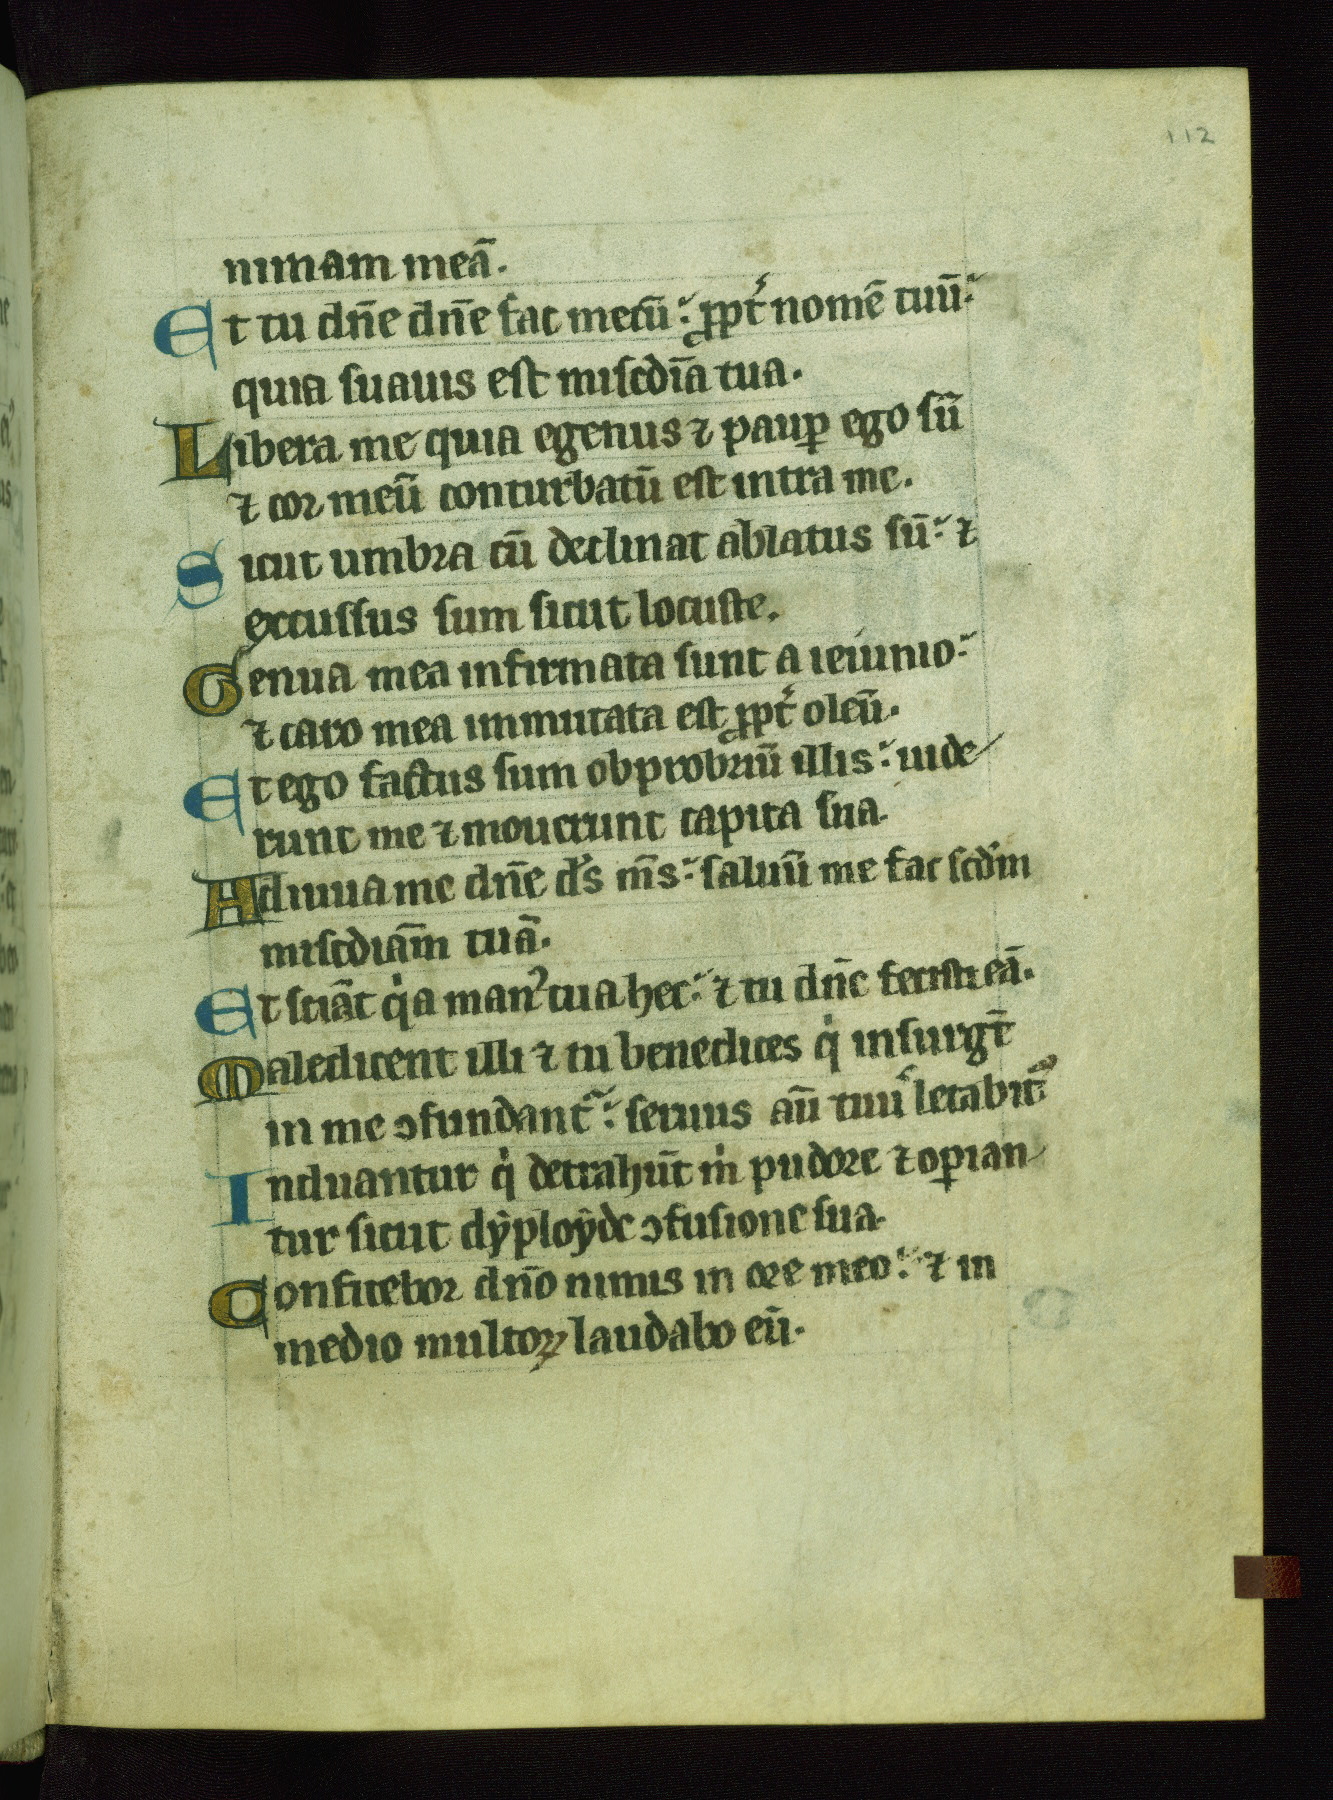 112
nimam meā.
Et tu dn̄e dn̄e fac mecū: ꝓpt̕ nomē tuū:
quia suauis est miscdīa tua.
Libera me quia egenus ⁊ paup̱ ego sū
⁊ cor meū conturbatū est intra me.
Sicut umbra cū declinat ablatus sū: ⁊
excussus sum sicut locuste.
Genua mea infirmata sunt a ieiunio:
⁊ caro mea immutata est ꝓpt̕ oleū.
Et ego factus sum obprobriū illis: uide
runt me ⁊ mouerunt capita sua.
Adiuua me dn̄e d̕s m̄s: saluū me fac scd̕m
miscdiām tuā.
Et sciāt q̇a man᷒ tua hec: ⁊ tu dn̄e fecisti eā.
Maledicent illi ⁊ tu benedices q̇ insurgt̄
in me ↄfundant᷑: seruus aū tuu᷒ letabit᷑.
Induantur q̇ detrahūt ṁ pudore ⁊ oꝑian
tur sicut dẏploẏde ↄfusione sua.
Confitebor dn̄o nimis in ore meo: ⁊ in
medio multoꝝ laudabo eū.